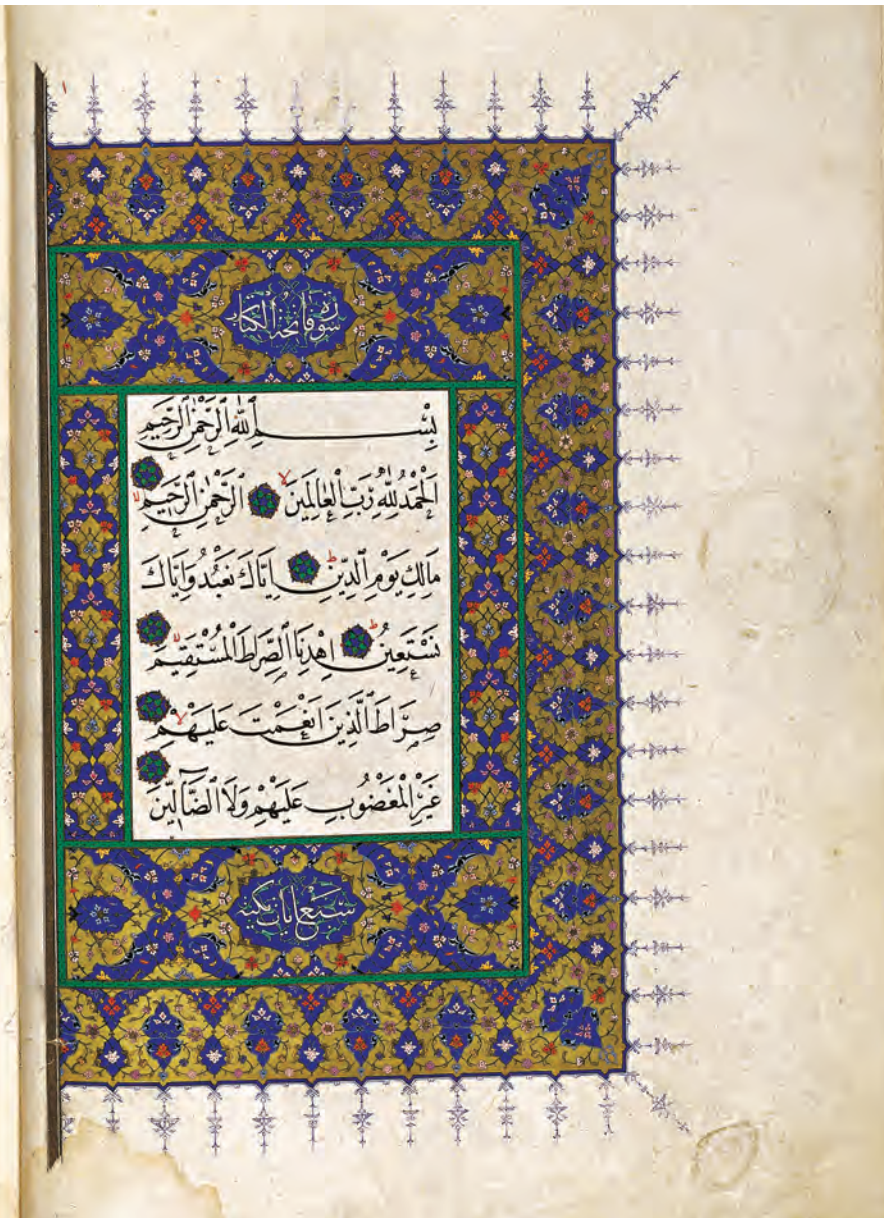 سورة فاتحة الكتاب
بِسْمِ ٱللّٰهِ ٱلرَّحْمٰنِ ٱلرَّحِيمِ
اَلْحَمْدُ لِلّٰهِ رَبِّ ٱلْعَالَمِينَ ۙ ٱلرَّحْمٰنِ ٱلرَّحِيمِ ۙ
مَالِكِ يَوْمِ ٱلدِّينِ ۜ اِيَّاكَ نَعْبُدُ وَاِيَّاكَ
نَسْتَعِينُ ۜ اِهْدِنَا ٱلصِّرَاطَ ٱلْمُسْتَقِيمَ ۙ
صِرَاطَ ٱلَّذِينَ اَنْعَمْتَ عَلَيْهِمْ ۙ
غَيْرِ ٱلْمَغْضُوبِ عَلَيْهِمْ وَلَا ٱلضَّٓالِّينَ
سبع ايات مكية